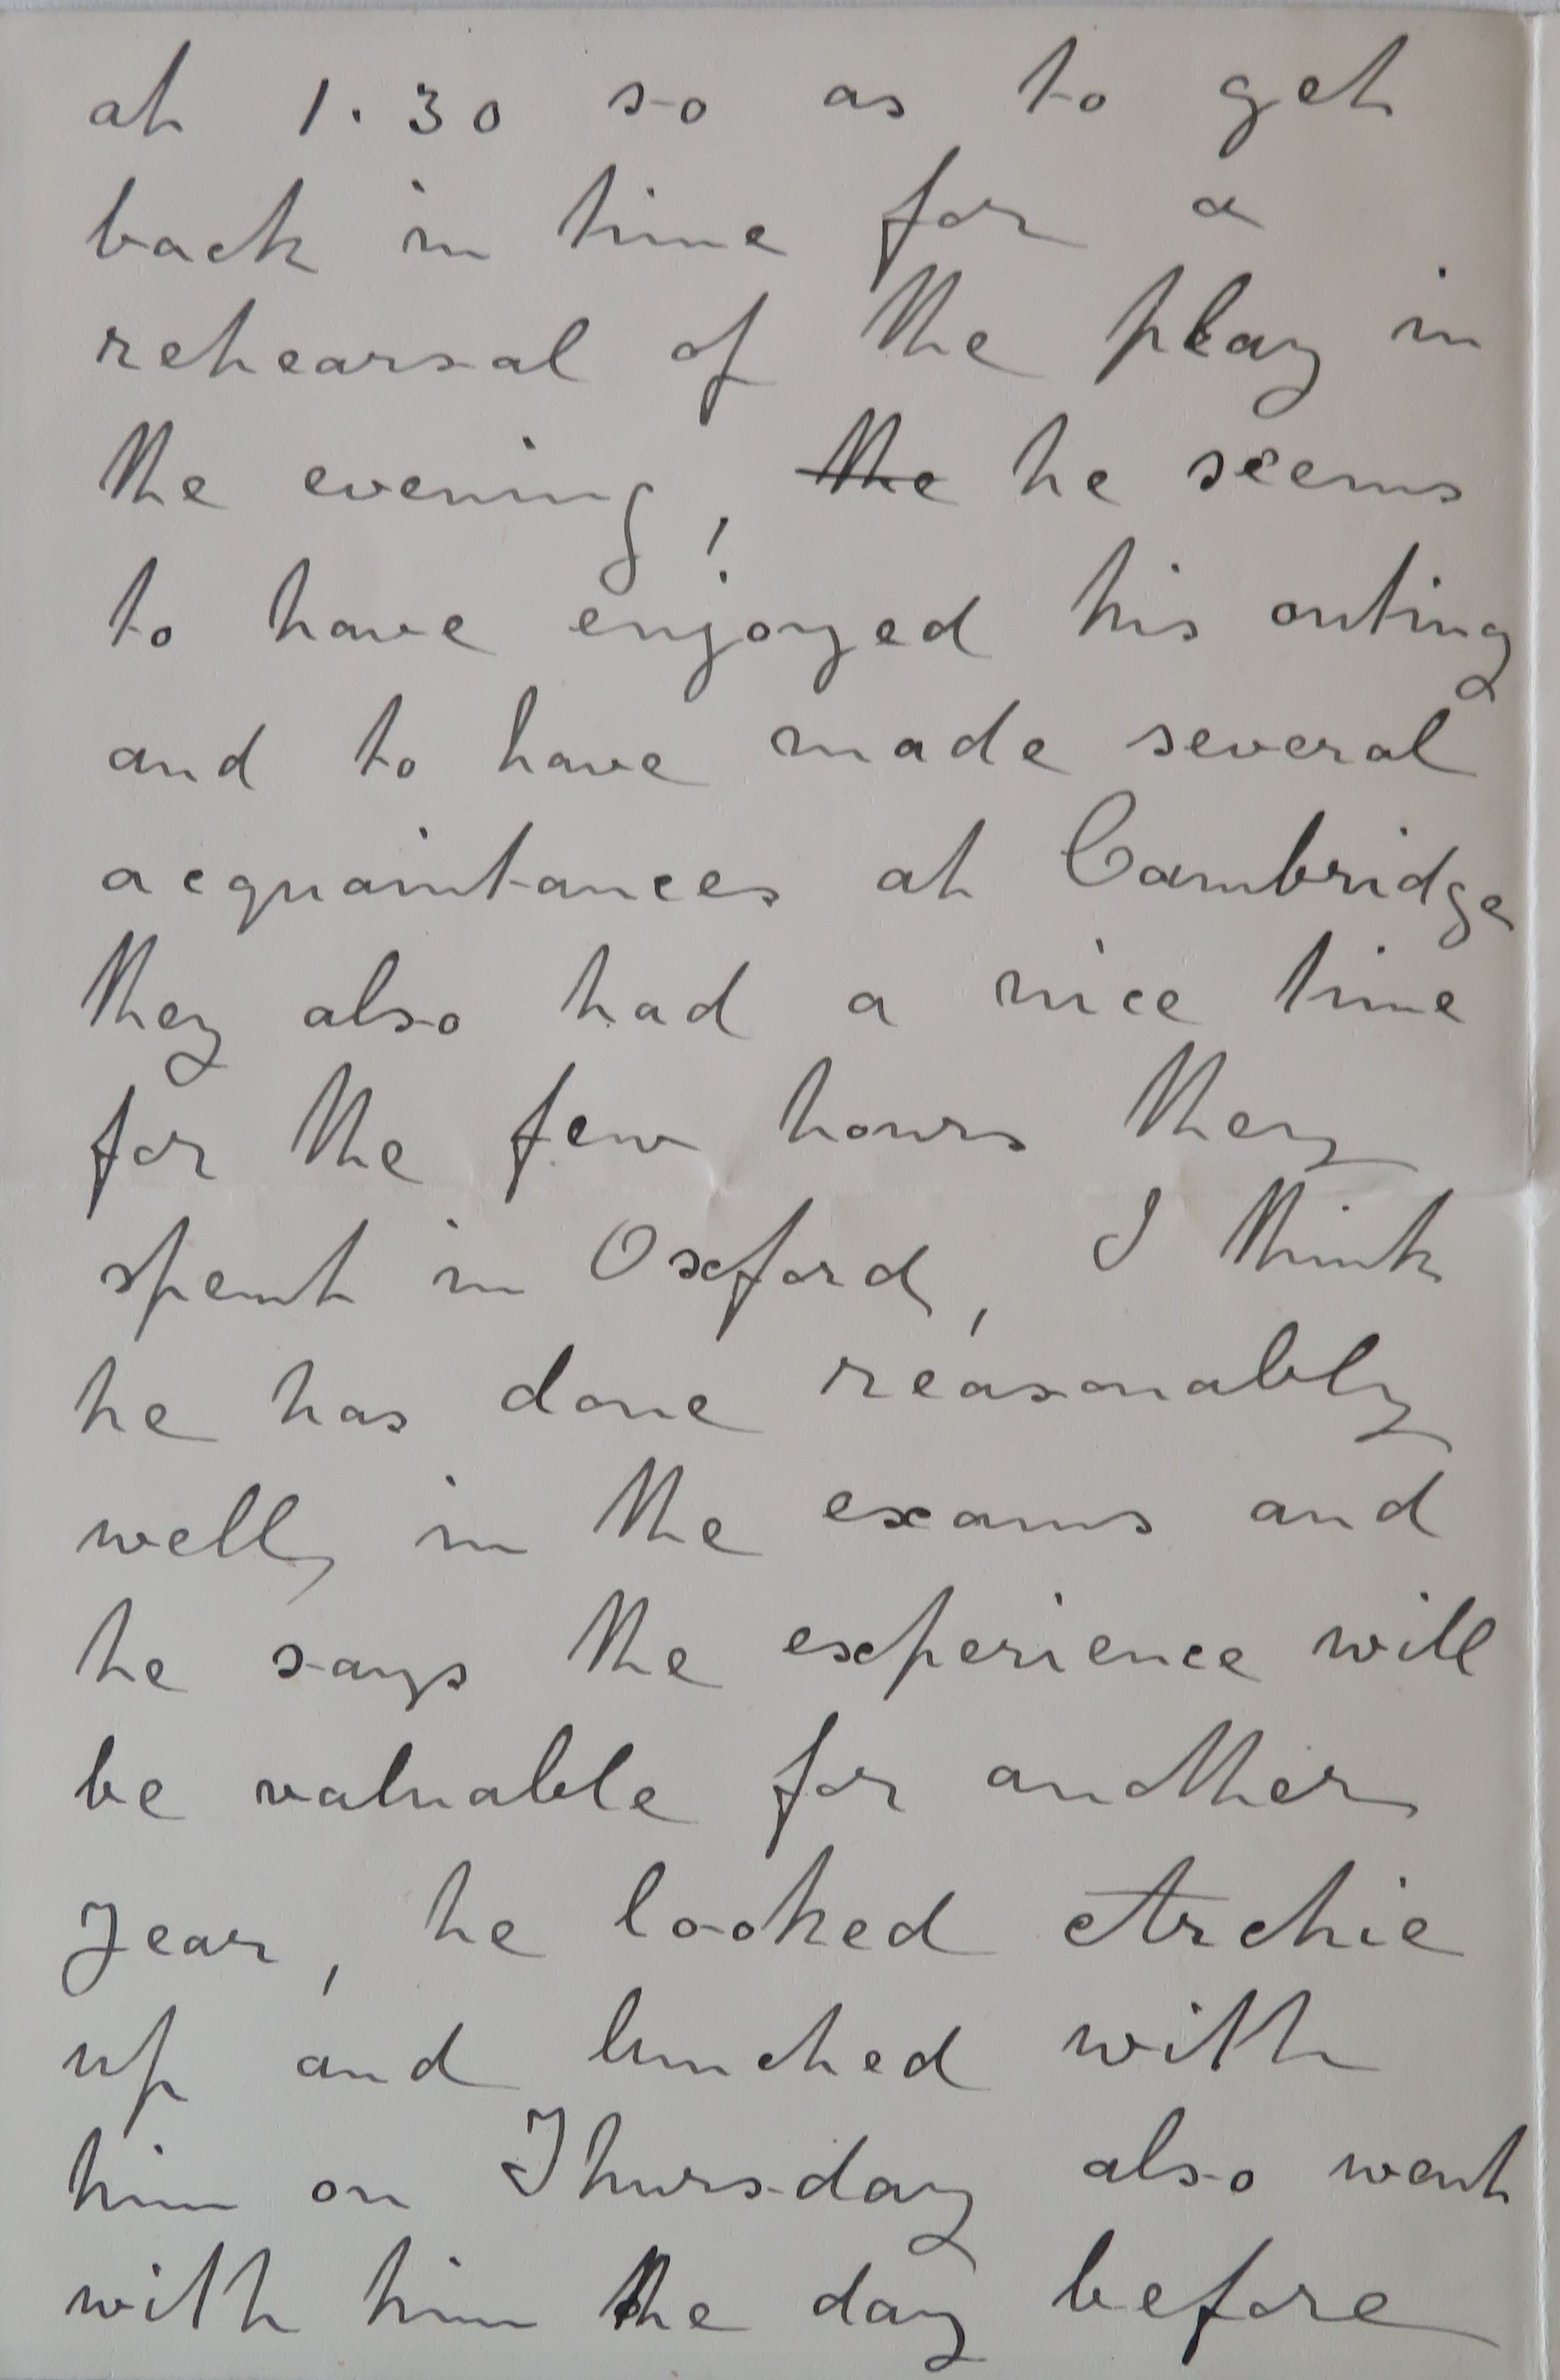 at 1.30 so as to get
back in time for a
rehearsal of the play in
the evening! the he seems
to have enjoyed his outing
and to have made several
acquaintances at Cambridge
they also had a nice time
for the few hours they
spent in Oxford, I think
he has done reasonably
well, in the exams and
he says the experience will
be valuable for another
year, he looked Archie
up and lunched with
him on Thursday also went
with him the day before